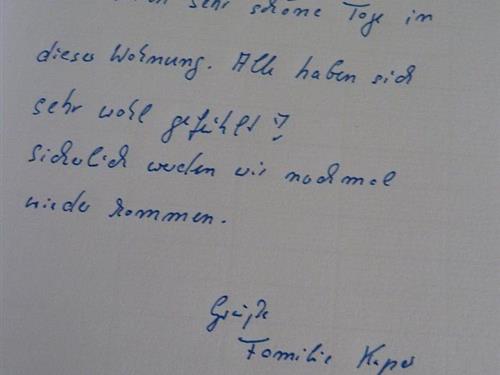 sehr schöne Tage in
dieser Wohnung. Alle haben sich
sehr wohl gefühlt!
Sicherlich werden wir nochmal
wieder kommen.
Grüße
Familie